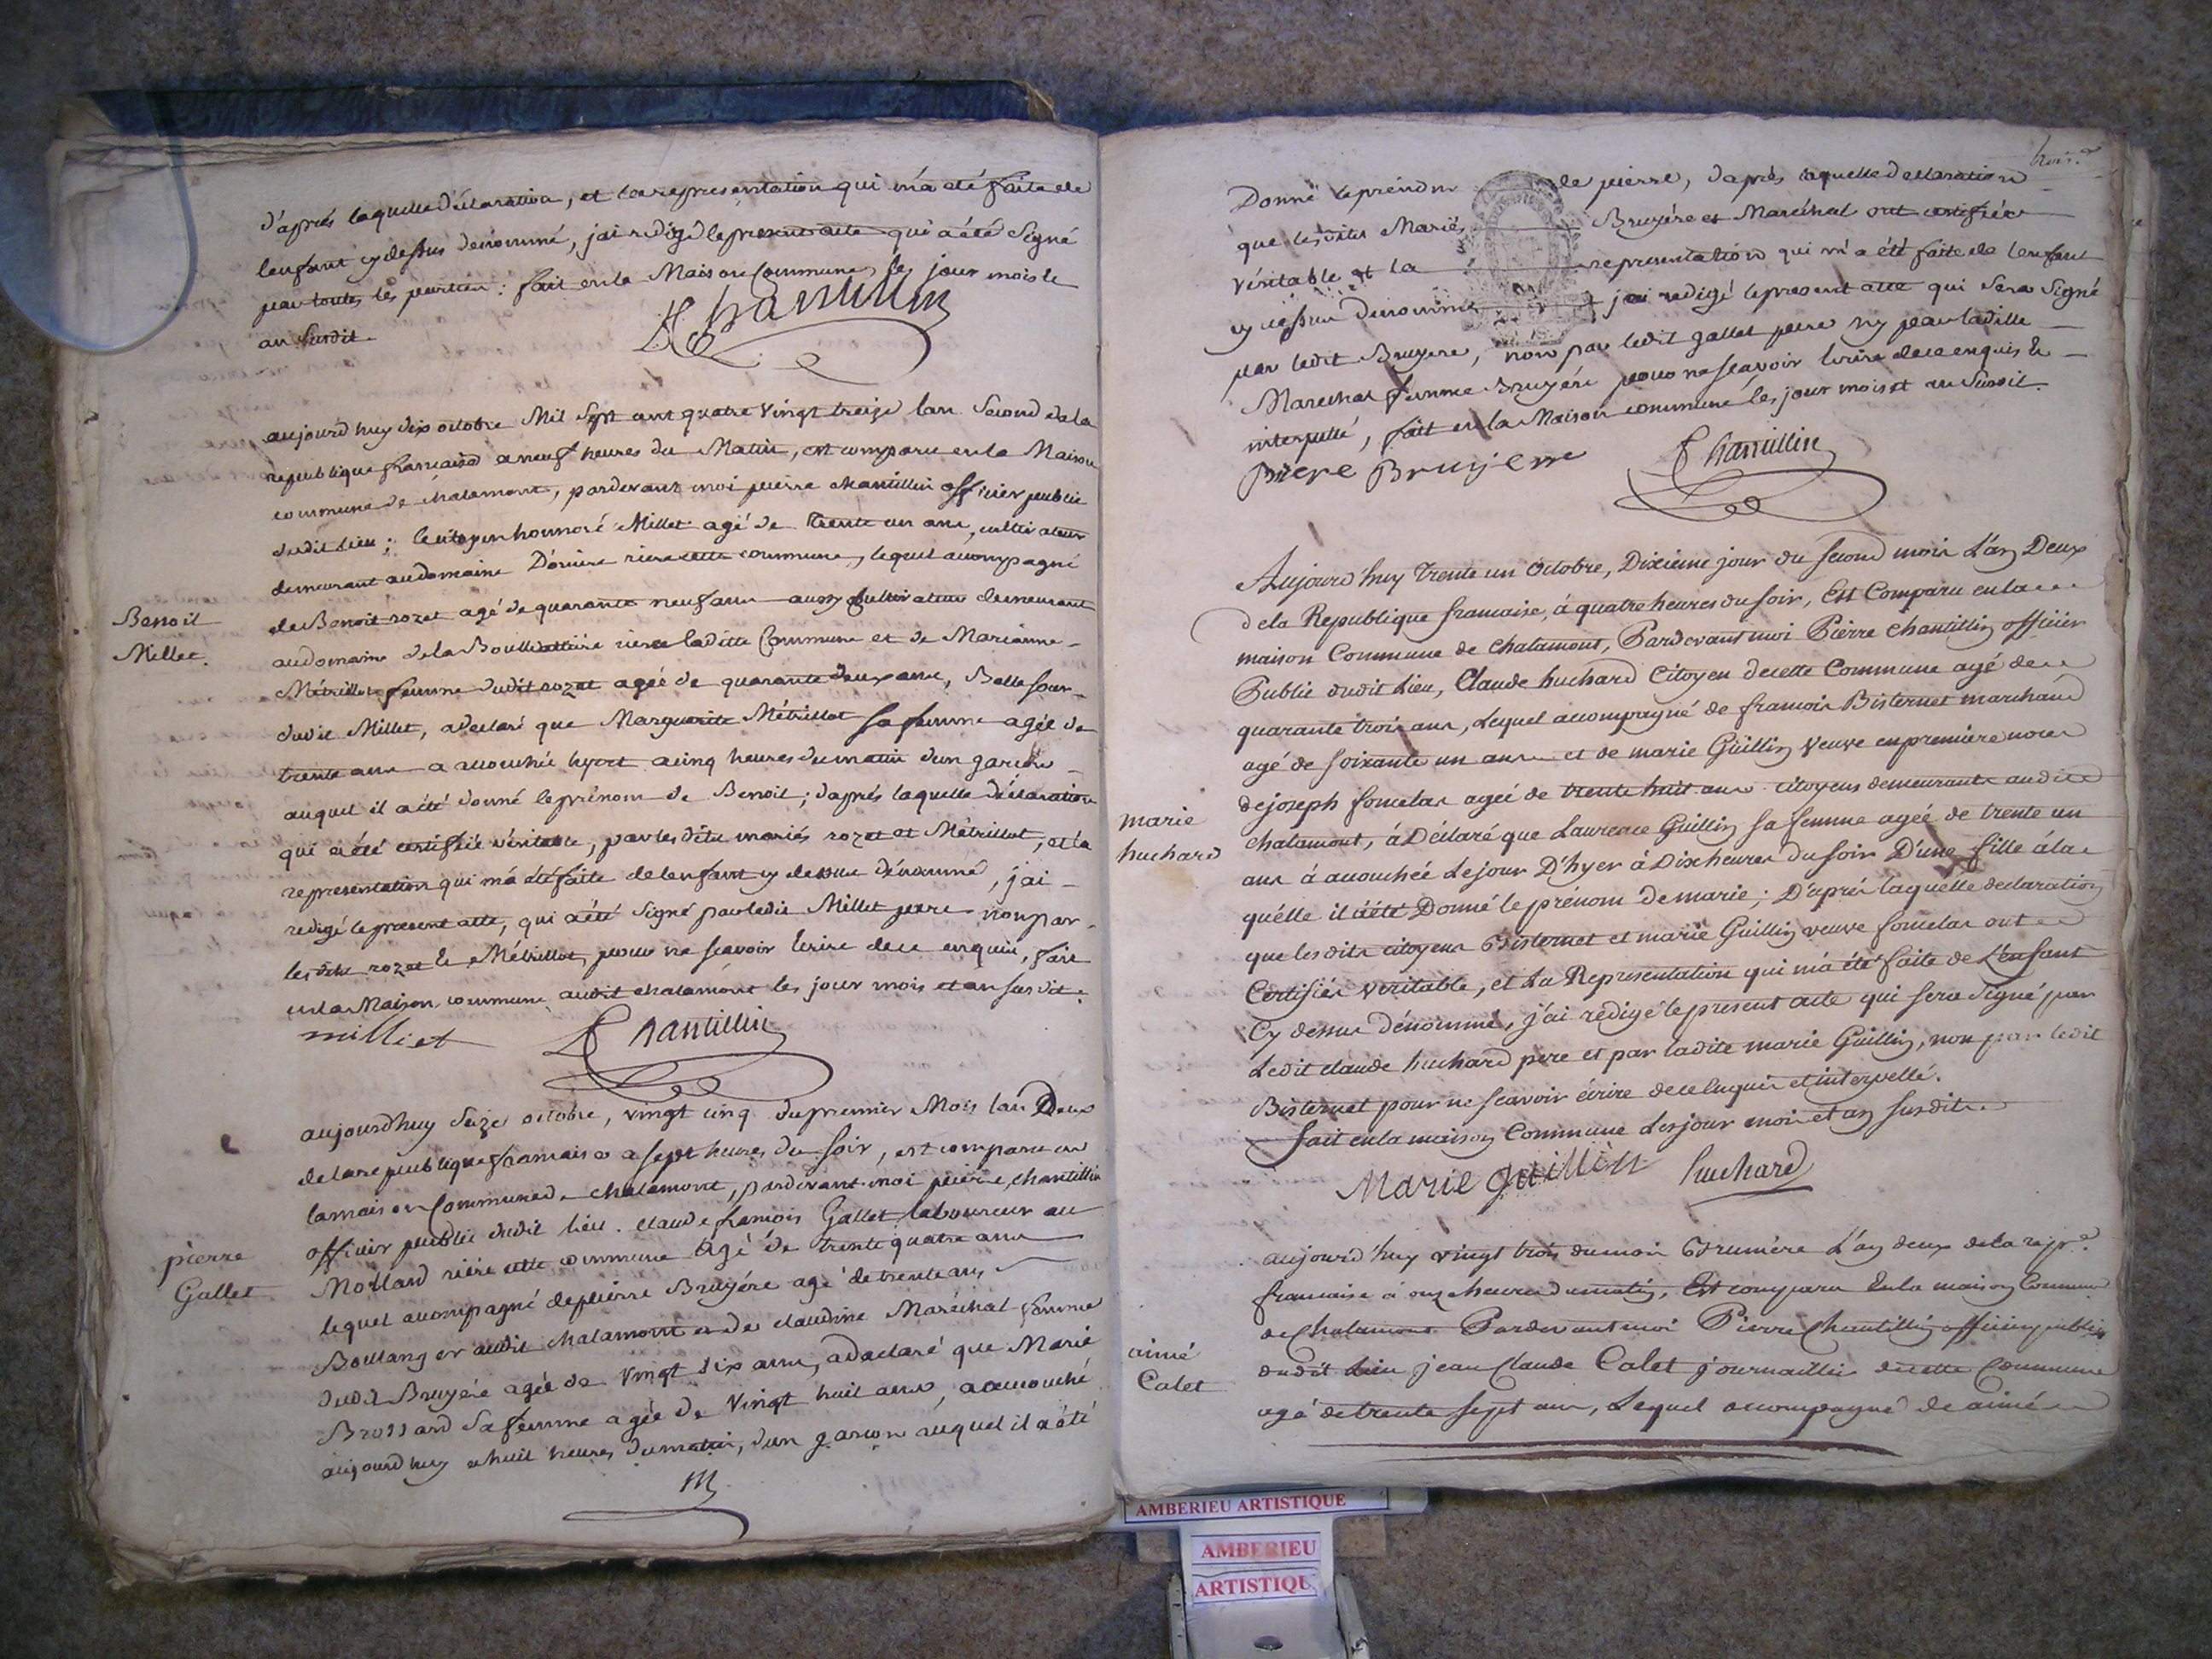 d'aprés laquelle déclaration, et la representation qui m'a été faite de
lenfant cy dessus denommé, j'ai redigé le present acte qui a été signé
par toutes les parties : fait en la Maison Commune les jour mois et
an susdit.
Chantillin
aujourd'huy dix octobre Mil Sept cent quatre vingt treize lan Second de la
republique francaise a neuf heures du Matin, est comparu en la Maison
commune de chalamont, pardevant moi pierre chantillin officier public
dudit lieu ; le citoyen honnoré Millet agé de trente un ans, cultivateur
demeurant au domaine riere cette commune, lequel accompagné
de Benoit rozet agé de quarante neuf ans aussy cultivateur demeurant
au domaine de la riere laditte Commune et de Marianne
Métrillot femme dudit rozet agée de quarante deux ans, Belle soeur
dudit Millet, a declaré que Marguerite Métrillot sa femme agée de
trente ans a accouchée hyert a cinq heures du matin d'un garcon
auquel il a été donné le prénom de Benoit ; d'aprés laquelle déclaration
qui a été certifiée véritable, par les dits mariés rozet et Métrillot, et la
representation qui m'a été faite de lenfant cy dessus dénommé, j'ai
redigé le present acte, qui a été signé par ledit Millet pere non par
les dits rozet et Métrillot, pour ne scavoir Ecrire de ce enquis, fait
en la Maison commune audit chalamont les jour mois et an susdit.
milliet Chantillin
Benoit
Millet.
aujourdhuy Seize octobre, vingt cinq du premier Mois lan Deux
de la republique francaise a sept heures du soir, est comparu en
la maison Commune de chalamont, pardevant moi pierre chantillin
officier public dudit lieu. claude francois Gallet laboureur au
Mollard riere cette commune agé de trente quatre ans
lequel accompagné de pierre Bruyére agé de trente ans
Boulanger audit chalamont et de claudine Maréchal femme
dudit Bruyére agée de vingt six ans, a declaré que Marie
Brossard sa femme agée de vingt huit ans, a accouché
aujourd huy a huit heures du matin, d'un garcon auquel il a été
pierre
Gallet
Donné le prénom de pierre, d'aprés laquelle declaration
que les dits Mariés Bruyére et Maréchal ont certifiée
véritable et la representation qui m'a été faite de lenfant
cy dessus denommé j'ai redigé le present acte qui sera signé
par ledit Bruyere, non par ledit gallet pere ny par ladille
Marechal femme Bruyére pour ne scavoir Ecrire de ce enquis et
interpellé, fait en la Maison commune les jour mois et an susdit.
Piere Bruyere Chantillin
Aujourd'huy trente un Octobre, Dixième jour du second mois L'an Deux
de la Republique francaise, à quatre heures du soir, Est Comparu en la
maison Commune de Chalamont, Pardevant moi Pierre Chantillin officier
Public dudit Lieu, Claude huchard Citoyen de cette Commune agé de
quarante trois ans, Lequel accompagné de francois Bisternet marchand
agé de soixante un ans et de marie Guillin Veuve en premiere noces
de joseph fomelas agée de trente huit ans citoyens demeurants audit
Chalamont, à Déclaré que Laurence Guillin sa femme agée de trente un
ans à accouchée Le jour D'hyer à Dix heures du soir D'une fille à la
quélle il à été Donné le prénom de marie ; D'aprés laquélle declaration
que les dits citoyens Bisternet et marie Guillin veuve fomelas ont
Certifiés veritable, et La Representation qui m'a été faite de L'enfant
Cy dessus dénommé, j'ai rédigé le present acte qui sera signé par
Ledit claude huchard pere et par ladite marie Guillin, non par ledit
Bisternet pour ne scavoir écrire de ce Enquis et interpellé.
fait en la maison Commune Les jour mois et an susdits.
Marie guillin huchard
marie
huchard
aujourd'huy vingt trois du mois Brumère L'an deux de la rep.
francaise à onze heures du matin, Est comparu En la maison Commune
de Chalamont Pardevant moi Pierre Chantillin officier public
dudit Lieu jean Claude Calet journaillier de cette Commune
agé de trente sept ans, Lequel accompagné de aimé
aimé
Calet
AMBERIEU ARTISTIQUE
AMBERIEU
ARTISTIQU